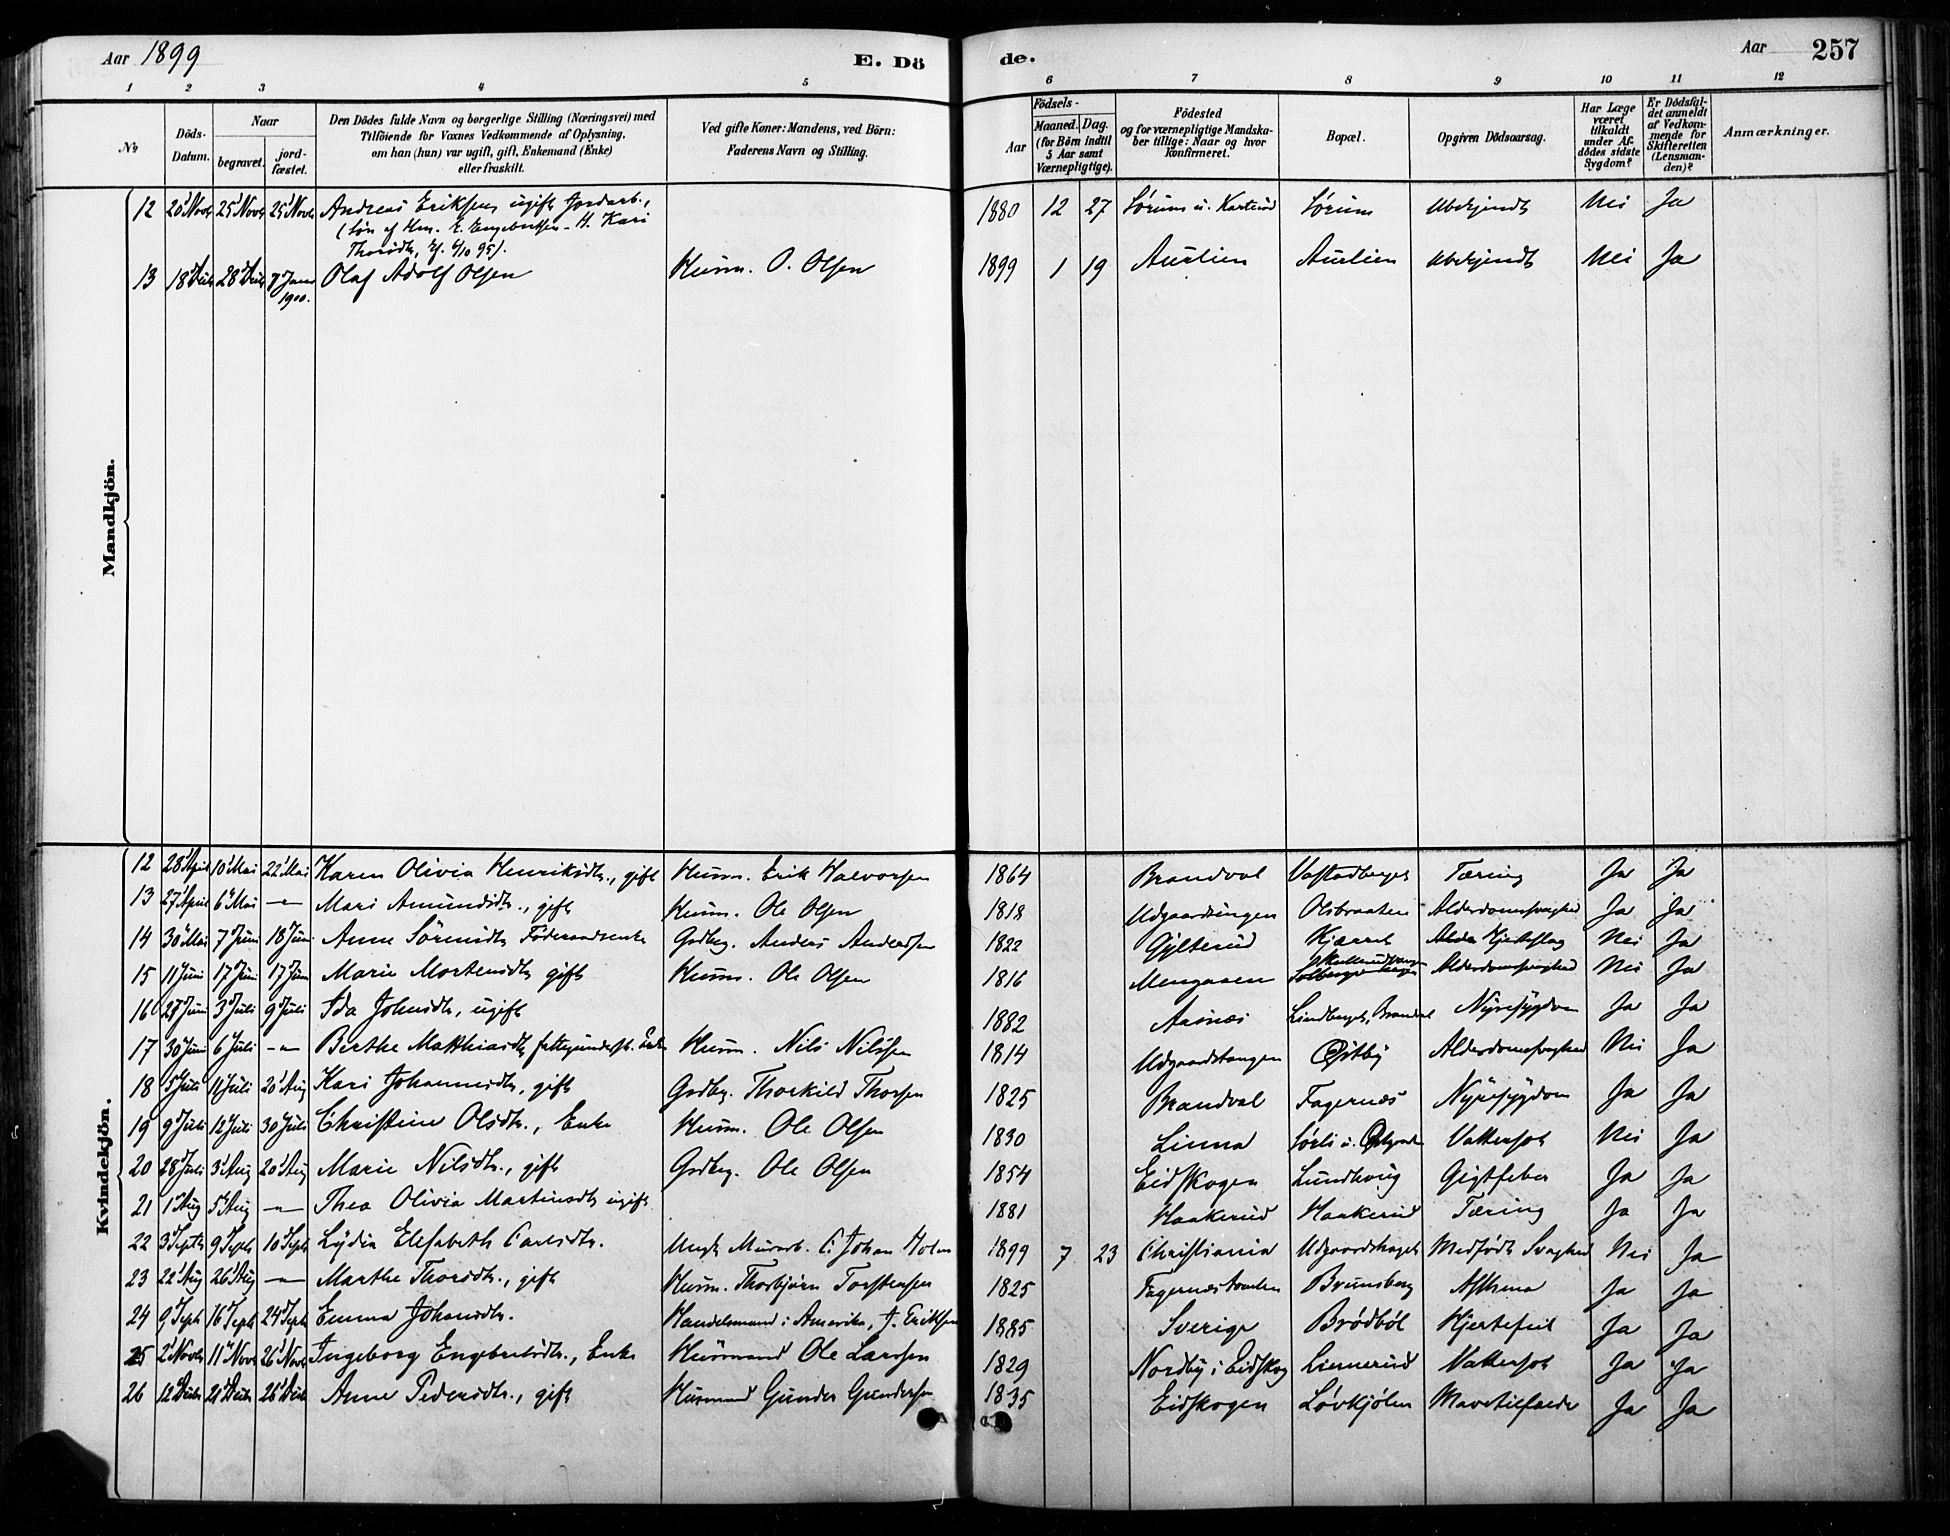 Aar 1899 E. Dö de. Aar 257
1 2 3 4 5 6 7 8 9 10 11 12
No
Döds-Datum.
Naar
begravet.
jord-fæstet.
Den Dödes fulde Navn og borgerlige Stilling (Næringsvei) med
Tilföiende for Voxnes Vedkommende af Oplysning,
om han (hun) var ugift, gift, Enkemand (Enke)
eller fraskilt.
Ved gifte Koner: Mandens, ved Börn:
Faderens Navn og Stilling.
Födsels-
Aar
Maaned. Dag.
(for Børn indtil
5 Aar samt
Værnepligtige).
Födested
og for værnepligtige Mandska-
ber tillige: Naar og hvor
Konfirmeret.
Bopæl.
Opgiven Dödsaarsag.
Har Læge
været
tilkaldt
under Af-
dödes sidste
Sygdom?
Er Dödsfal-
det anmeldt
af Vedkom-
mende for
Skifteretten
(Lensman-
den)?
Anmærkninger.
Mandkjön.
12 20 Novb 25 Novb 25 Novb Andreas Eriksen ugift Jordarb., 1880 12 27 Sörum u. Sörum Ubekjendt Nei Ja
(Søn af Hm. E. Engebretsen - H. Kari
Thorsdtr,
13 18 Decb 28 Decb 7 Janr 1900. Olaf Adolf Olsen Husm. O. Olsen 1899 1 19 Aurlien Aurlien Ubekjendt Nei Ja
Kvindekjön.
12 28 April 10 Mai 22 Mai Karen Olivia Henriksdtr., gift Husm. Erik Halvorsen 1864 Brandval Vastadberget Tæring Ja Ja
13 27 April 6 Mai -"- Mari Amundsdtr., gift Husm. Ole Olsen 1818 Udgaardsengen Olsbraaten Alderdomssvaghed Ja Ja
14 30 Mai 7 Juni 18 Juni Anne Sörensdtr Föderaadsenke Grdbr. Anders Andersen 1822 Gjilterud Kjærret Hjerteslag Nei Ja
15 11 Juni 17 Juni 17 Juni Marie Mortensdtr gift Husm. Ole Olsen 1816 Mengaasen Alderdomssvaghed Nei Ja
16 27 Juni 3 Juli 9 Juli Ida Johnsdtr, ugift 1882 Aasnæs Lindberget, Brandval Nyresygdom Ja Ja
17 30 Juni 6 Juli -"- Berthe Matthiasdtr fattigunderst. Enke Husm. Nils Nilssen 1814 Udgaardstangen Østby Alderdomssvaghed Nei Ja
18 5 Juli 11 Juli 20 Aug Kari Johannesdtr, gift Grdbr. Thorkild Thorsen 1825 Brandval Fagernæs Nyresygdom Ja Ja
19 9 Juli 12 Juli 30 Juli Christine Olsdtr., Enke Husm. Ole Olsen 1830 Linna Sørli u. Vattersot Nei Ja
20 28 Juli 3 Aug 20 Aug Marie Nilsdtr., gift Grdbr. Ole Olsen 1854 Eidskogen Lundhoug Gigtfeber Ja Ja
21 1 Aug 5 Aug -"- Thea Olivia Martinsdtr ugift 1881 Haakerud Haakerud Tæring Ja Ja
22 3 Septb 9 Septb 10 Septb Lydia Elisabeth Carlsdtr. Ungk. Murarb. C. Johan Holm 1899 7 23 Christiania Udgaardshaget Medfödt Svaghed Nei Ja
23 22 Aug 26 Aug -"- Marthe Thorsdtr., gift Husm. Thorbjørn Torstensen 1825 Brunsberg Asthma Ja Ja
24 9 Septb 16 Septb 24 Septb Emma Johansdtr. Handelsmand i Amerika, J. Eriksen 1885 Sverige Brødböl Hjertefeil Ja Ja
25 2 Novb 11 Novb 26 Novb Ingeborg Engebretsdtr., Enke Husmand Ole Larssen 1829 Nordby i Eidskog Linnerud Vattersot Ja Ja
26 12 Decb 21 Decb 26 Decb Anne Pedersdtr., gift Husmand Gunder Gundersen 1835 Eidskogen Løvhjølen Mavetilfælde Ja Ja